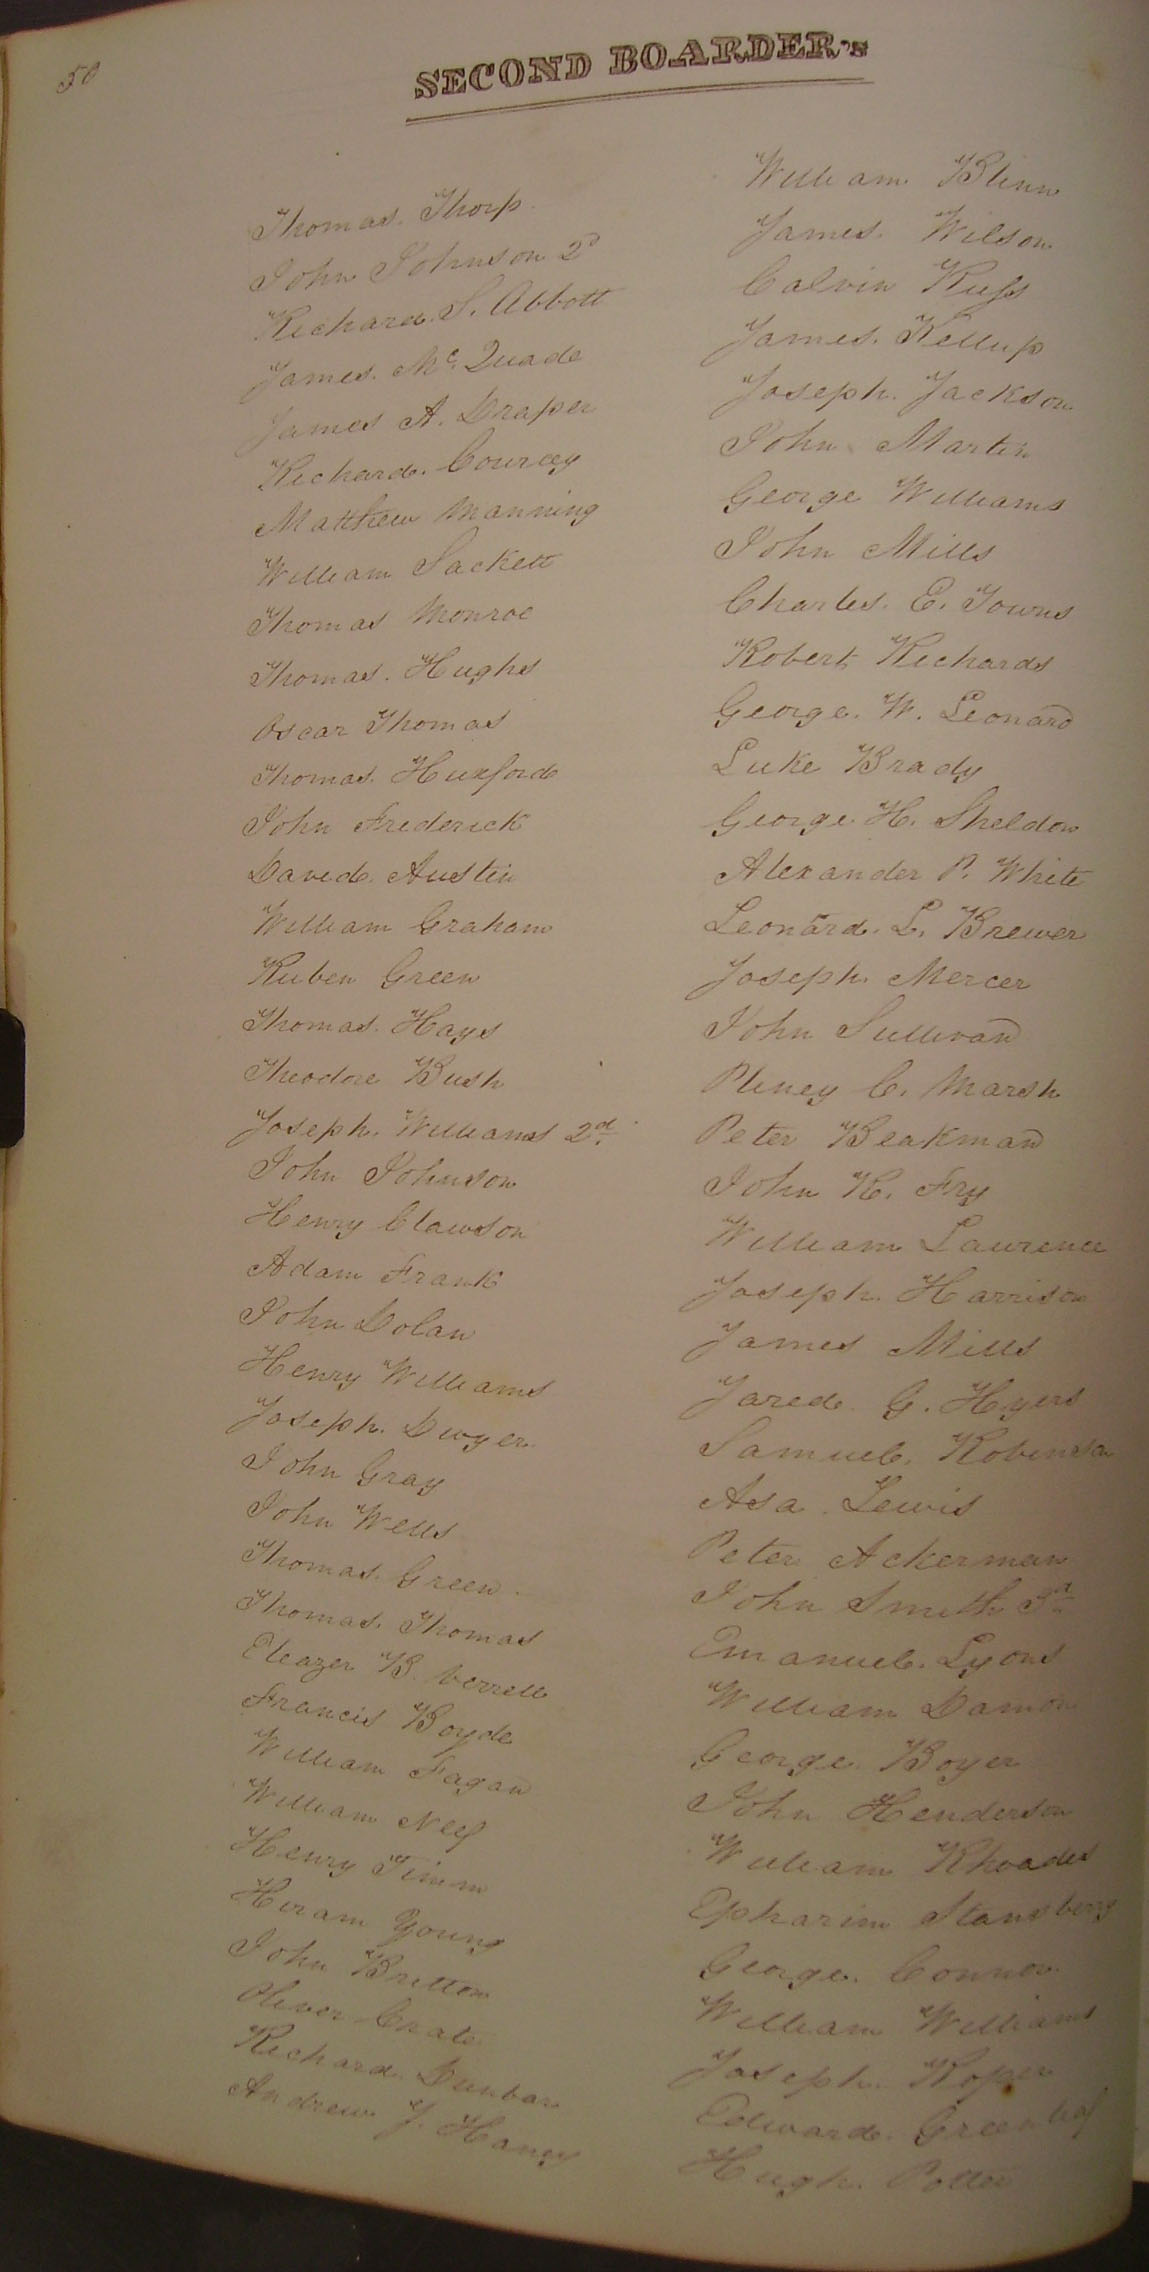 50
SECOND BOARDER's
Thomas. Thorp.
John Johnson 2d
Richard. S. Abbott
James. Mc. Quade
James A. Draper
Richard. Courcey
Matthew Manning
William Sackett
Thomas Monroe
Thomas. Hughs
Oscar Thomas
Thomas. Huxford
John Frederick
David. Austin
William Graham
Ruben Green
Thomas. Hays
Theodore Bush
Joseph. Williams 2d.
John Johnson
Henry Clawson
Adam Frank
John Dolan
Henry Williams
Joseph. Dwyer.
John Gray
John Wells
Thomas. Green.
Thomas. Thomas
Eleazer B. Verrell
Francis Boyde
William Fagan
William Neef
Henry Timm
Hiram Young
John Britton
Oliver Crate
Richard. Dunbar
Andrew J. Haney
William Blinn
James. Wilson
Calvin Russ
James. Kellup
Joseph. Jackson
John Martin
George Williams
John Mills
Charles. E. Towns
Robert Richards
George. W. Leonard
Luke Brady
George H. Sheldon
Alexander P. White
Leonard. L. Brewer
Joseph. Mercer
John Sullivan
Pliney C. Marsh
Peter Beakman
John R. Fry
William Laurence
Joseph. Harrison
James Mills
Jared. G. Hyers
Samuel. Robinson
Asa. Lewis
Peter Ackerman
John Smith 3d.
Emanuel. Lyons
William Damon
George. Boyer
John Henderson
William Rhoades
Epharim Stansberry
George. Connor
William Williams
Joseph. Roper
Edward. Greenleaf
Hugh. Potter